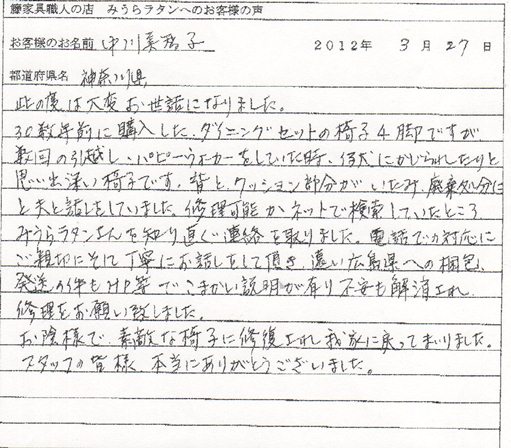 籐家具職人の店 みうらラタンへのお客様の声
お客様のお名前 中川 子 2012年 3月27日
都道府県名 神奈川県
此の度は大変お世話になりました。
30数年前に購入した、ダイニングセットの椅子4脚ですが
数回の引越し、パピーウォーカーをしていた時、仔犬にかじられたりと
思い出深い椅子です。背と、クッション部分がいたみ、廃棄処分に
と夫と話しをしていました。修理可能かネットで検索していたところ
みうらラタンさんを知り直ぐ連絡を取りました。電話での対応に
ご親切にそして丁寧にお話しをして頂き、遠い広島県への梱包、
発送の件もHP等でこまかい説明が有り不安も解消され
修理をお願い致しました。
お陰様で、素敵な椅子に修復され我家に戻ってまいりました。
スタッフの皆様、本当にありがとうございました。